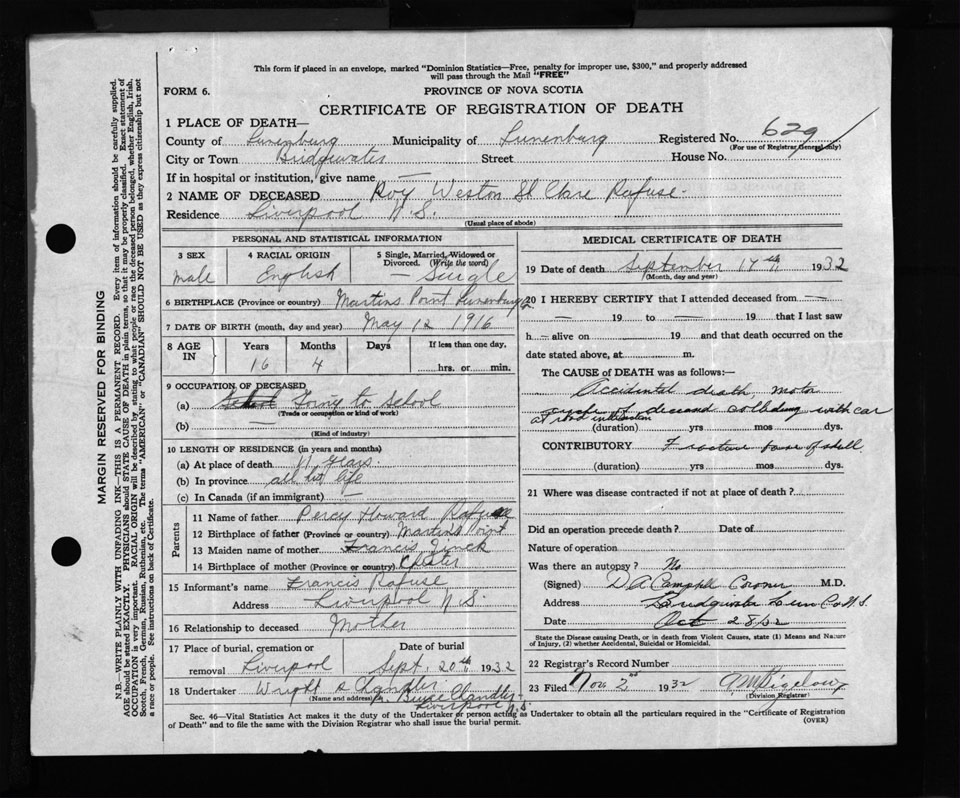 This form if placed in an envelope, marked "Dominion Statistics—Free, penalty for improper use, $300," and properly addressed
will pass through the Mail "FREE"
FORM 6.
PROVINCE OF NOVA SCOTIA
CERTIFICATE OF REGISTRATION OF DEATH
1 PLACE OF DEATH—
County of Lunenburg Municipality of Lunenburg Registered No. 629
(For use of Registrar General only)
City or Town Bridgewater Street House No.
If in hospital or institution, give name —
2 NAME OF DECEASED Roy Weston St Clare Rafuse
Residence Liverpool N.S.
(Usual place of abode)
PERSONAL AND STATISTICAL INFORMATION
3 SEX 4 RACIAL ORIGIN 5 Single, Married, Widowed or
Divorced. (Write the word)
male English Single
6 BIRTHPLACE (Province or country) Martins Point Lunenburg
7 DATE OF BIRTH (month, day and year) May 12 1916
8 AGE IN Years Months Days If less than one day,
16 4 hrs. or min.
9 OCCUPATION OF DECEASED
(a) School Going to School
(Trade or occupation or kind of work)
(b) —
(Kind of industry)
10 LENGTH OF RESIDENCE (in years and months)
(a) At place of death 11 years
(b) In province all his life
(c) In Canada (if an immigrant) —
Parents
11 Name of father Percy Howard Rafuse
12 Birthplace of father (Province or country) Martins Point
13 Maiden name of mother Francis Zinck
14 Birthplace of mother (Province or country) Chester
15 Informant's name Francis Rafuse
Address Liverpool N.S.
16 Relationship to deceased Mother
17 Place of burial, cremation or Date of burial
removal Liverpool Sept. 20th 1932
18 Undertaker Wright &
(Name and address) Chandler
Liverpool N.S.
MEDICAL CERTIFICATE OF DEATH
19 Date of death September 17th 1932
(Month, day and year)
20 I HEREBY CERTIFY that I attended deceased from —
— 19 to — 19 that I last saw
h — alive on 19 and that death occurred on the
date stated above, at m.
The CAUSE of DEATH was as follows:—
Accidental death, motor
cycle of deceased colliding with car
at road intersection
(duration) yrs mos dys.
CONTRIBUTORY Fracture base of skull
(duration) yrs mos dys.
21 Where was disease contracted if not at place of death?
Did an operation precede death? Date of
Nature of operation
Was there an autopsy? No
(Signed) D A Campbell Coroner M.D.
Address Bridgewater Lun Co N.S.
Date Oct 28/32
State the Disease causing Death, or in death from Violent Causes, state (1) Means and Nature
of Injury, (2) whether Accidental, Suicidal or Homicidal.
22 Registrar's Record Number
23 Filed Nov 2nd 1932
(Division Registrar)
Sec. 46—Vital Statistics Act makes it the duty of the Undertaker or person acting as Undertaker to obtain all the particulars required in the "Certificate of Registration
of Death" and to file the same with the Division Registrar who shall issue the burial permit. (OVER)
MARGIN RESERVED FOR BINDING
N.B. WRITE PLAINLY WITH UNFADING INK—THIS IS A PERMANENT RECORD. Every item of information should be carefully supplied.
AGE should be stated EXACTLY. PHYSICIANS should STATE CAUSE OF DEATH in plain terms, so that it may be properly classified. Exact statement of
OCCUPATION is very important. RACIAL ORIGIN will be described by stating to what people or race the deceased person belonged, whether English, Irish,
Scotch, French, German, Russian, Ruthenian, etc. The terms "AMERICAN" or "CANADIAN" SHOULD NOT BE USED as they express citizenship but not
a race or people. See instructions on back of Certificate.